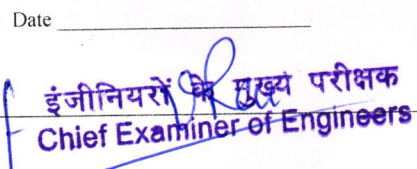 Date
इंजीनियरों के मुख्य परीक्षक
Chief Examiner of Engineers